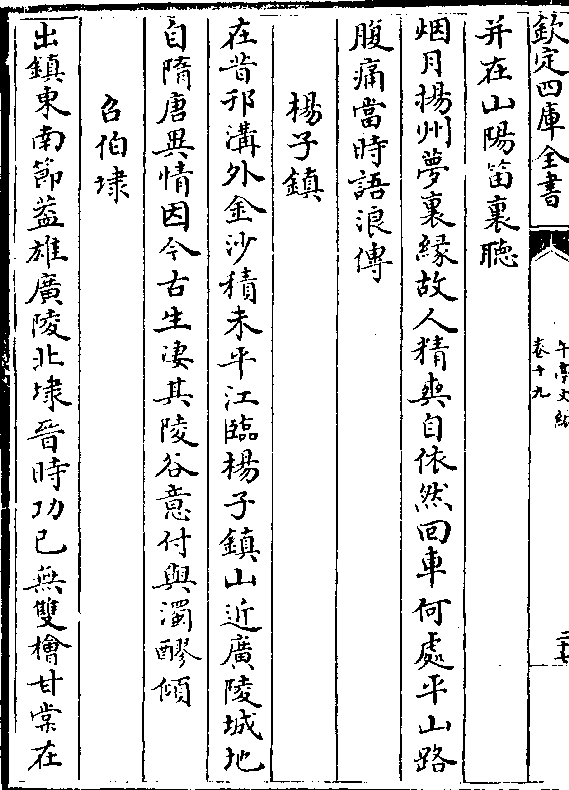 欽定四庫全書
午亭文編
卷十九
二十七
并在山陽笛裏聽
烟月揚州夢裏緣故人精爽自依然回車何處平山路
腹痛當時語浪傳
楊子鎮
在昔邗溝外金沙積未平江臨楊子鎮山近廣陵城地
自隋唐異情因今古生凄其陵谷意付與濁醪傾
召伯埭
出鎮東南節葢雄廣陵北埭晉時功已無雙檜甘棠在